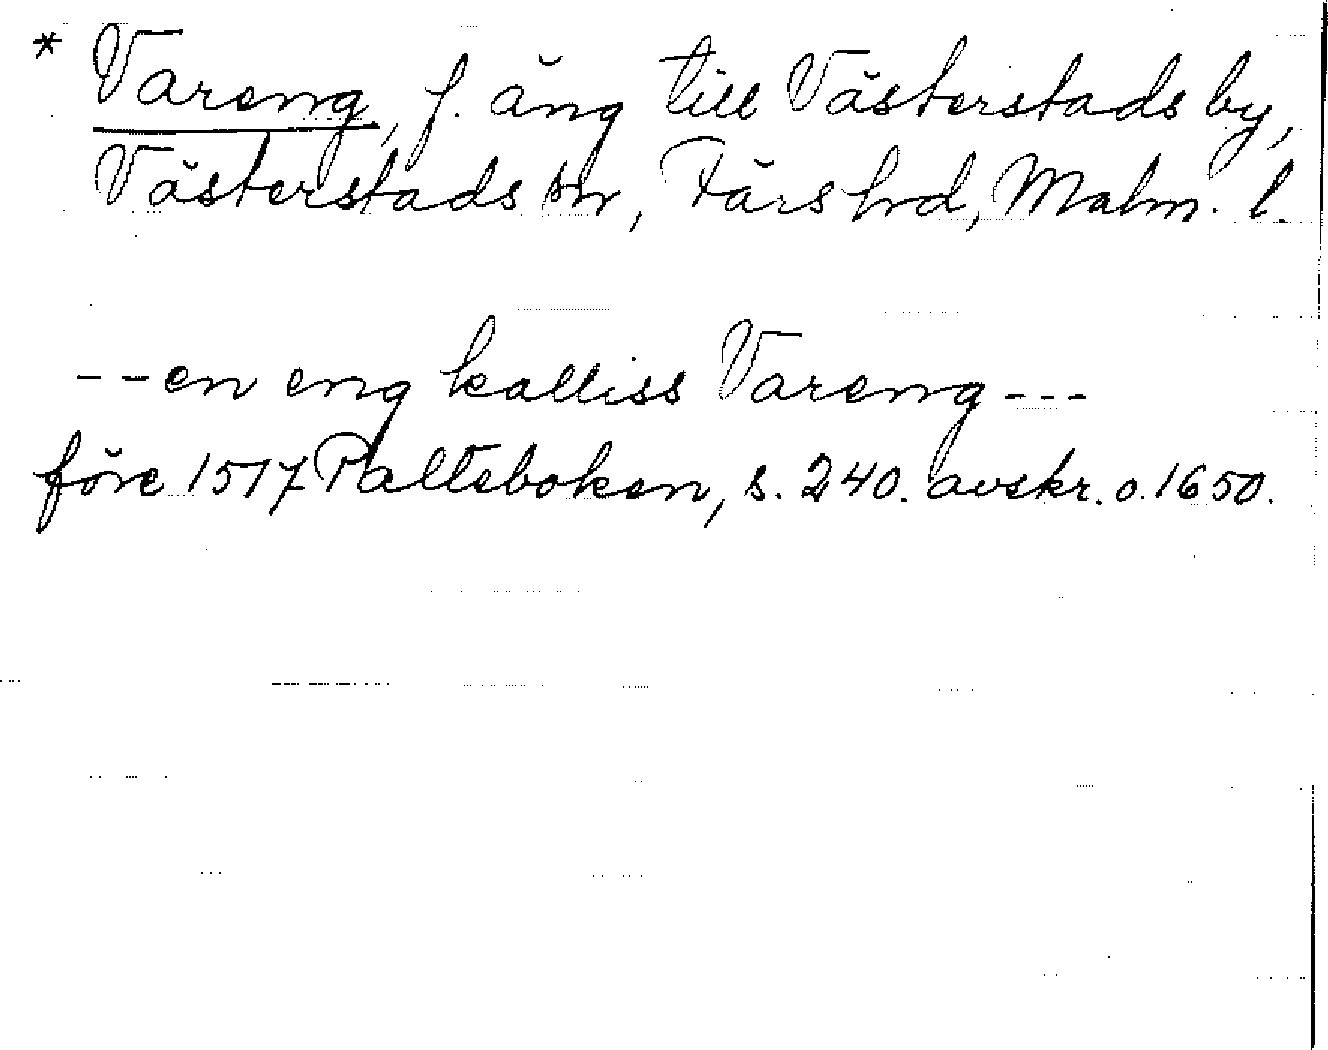 * Vareng, f. äng till Västerstads by,
Västerstads sn, Färs hrd, Malm. l.
- - en eng kalliss Vareng - - -
före 1517 Palteboken, s. 240. avskr. o. 1650.